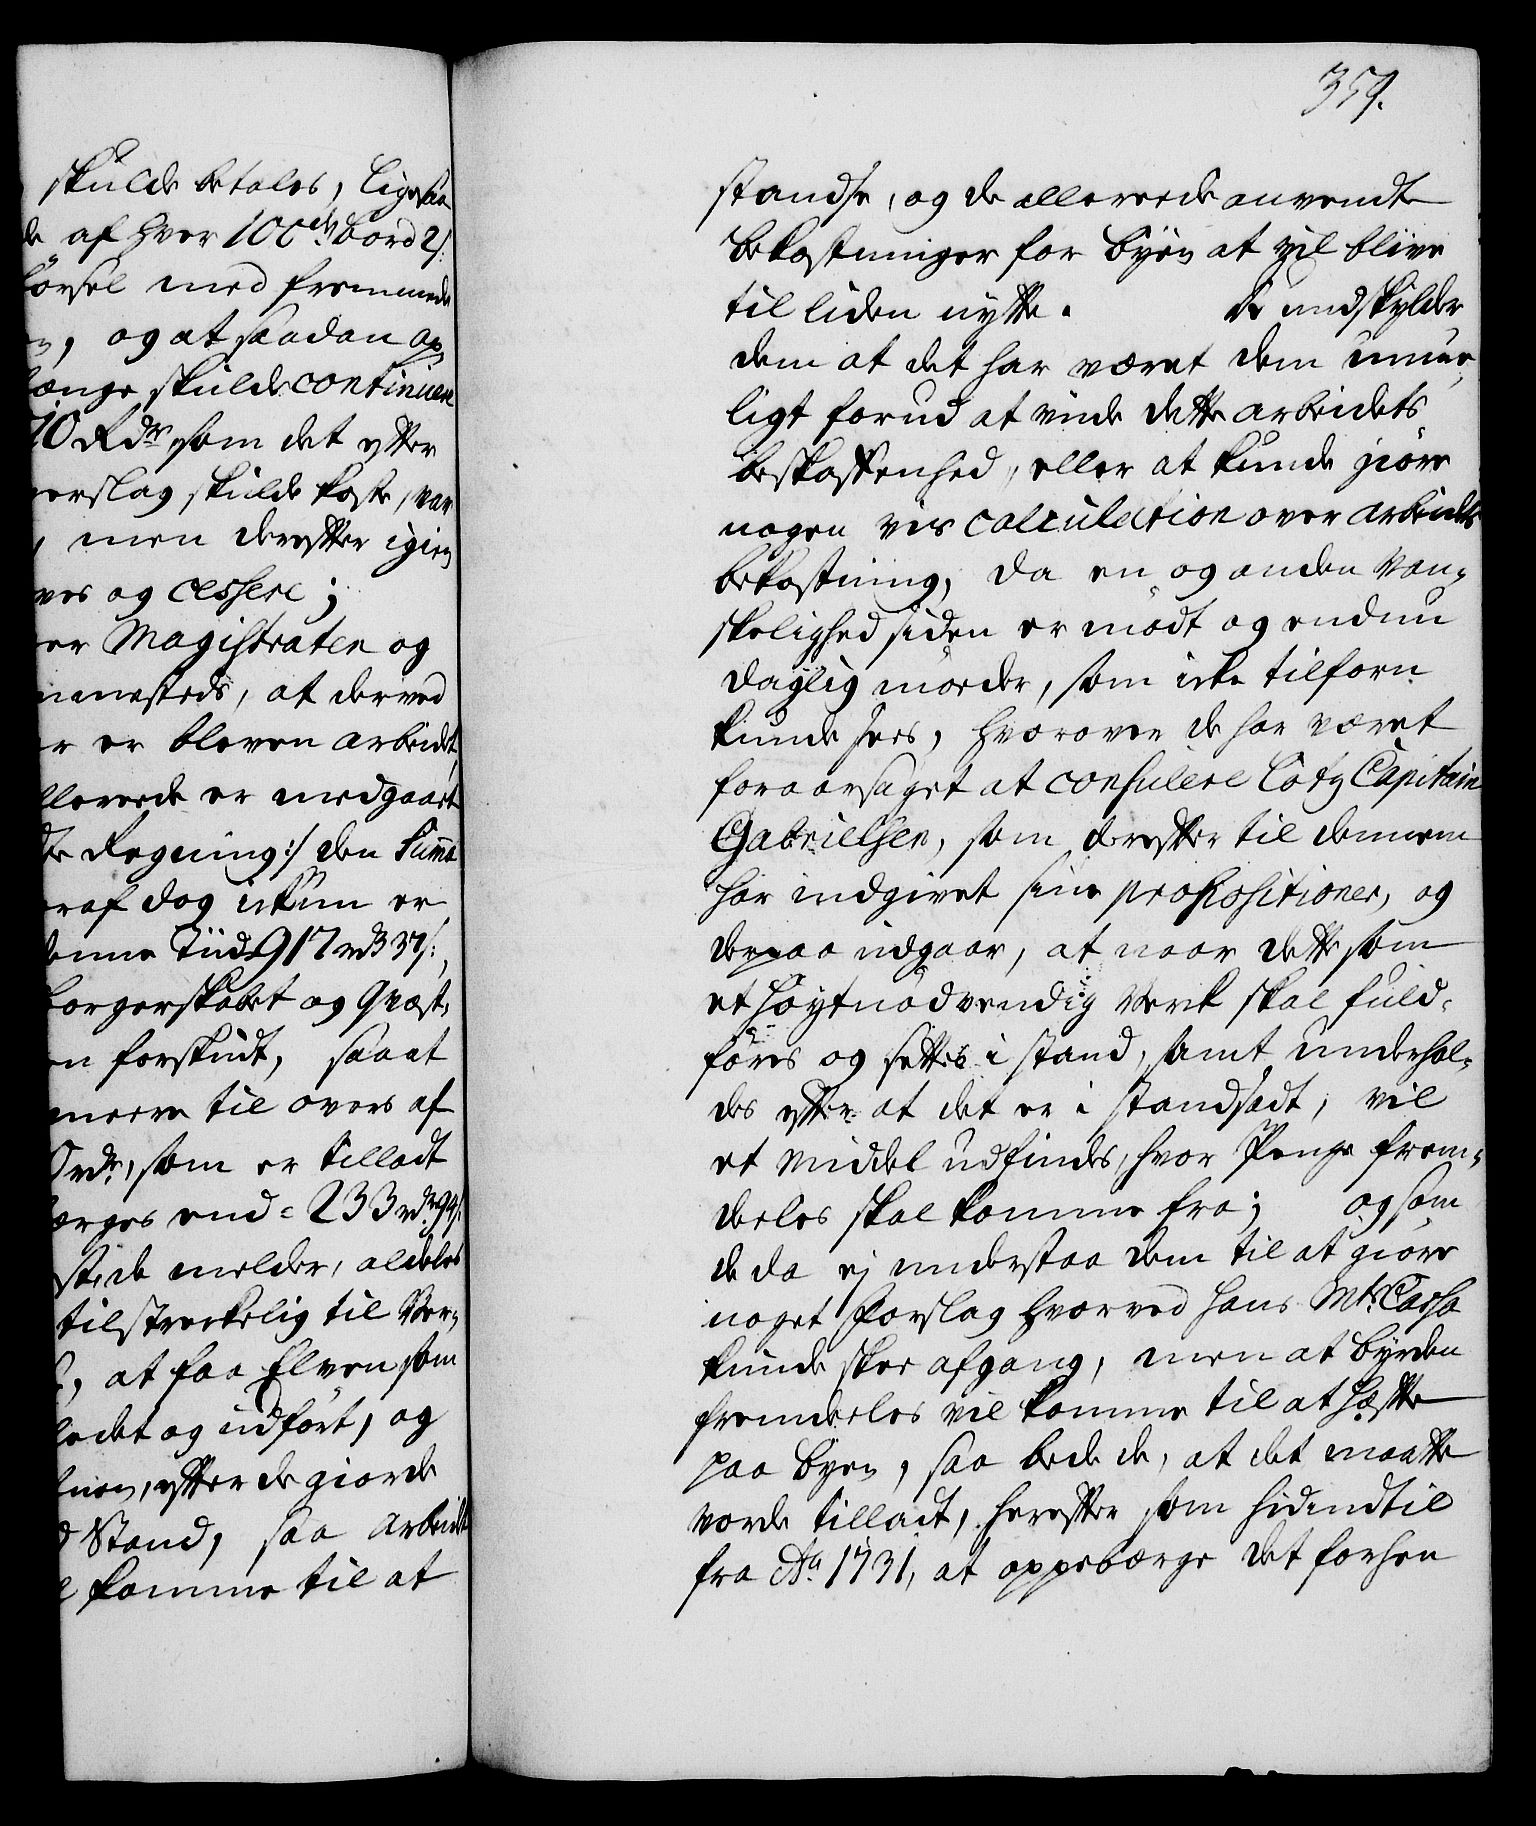 skulde betales, ligesaa
de af hver 100de bord 2 s:
försel med fremmede
og at saadan op
længe skulde continuere
70 Rdr som det efter
forslag skulde koste, var
men derefter igien
ves og cessere;
er Magistraten og
at derved
er er bleven arbeidet
allerede er medgaaet
Regning:/ den Summa
eraf dog ickun er
denne Tiid 917 rd 3
borgerskabet og
en forskudt, saa at
meere til overs af
0 rdr, som er tilladt
bærges end = 233 rdr 94 s:
de melder, aldeles
tilstreckelig til
at faa Elven som
ledet og udfört, og
efter de giorde
Stand, saa arbeidet
komme til at
359.
standse, og de allereede anvendte
bekostninger for byen at vil blive
til liden nytte. De undskylder
dem at det har været dem umue-
ligt forud at vide dette arbeidets
beskaffenhed, eller at kunde giöre
nogen vis calculation over arbeidets
bekostning, da en og anden van-
skelighed siden er mödt og endnu
daglig möeder, som icke tilforn
kunde sees, hvorover de har været
foraarsaget at consulere Lotz Capitain
Gabrielsen, som derefter til dennem
har indgivet sine propositioner, og
derpaa udgaar, at naar dette som
et höytnödvendig Verk skal fuld-
föres og settes i stand, samt underhol-
des efter at det er i standsadt, vil
et Middel udfindes, hvor Penge frem-
deeles skal komme fra; og som
de da ej understaa dem til at giöre
noget Forslag hvorved hans Mts Cassa
kunde skee afgang, men at byrden
fremdeeles vil komme til at hæfte
paa byen, saa bede de, at det maatte
vorde tilladt, herefter som hidindtil
fra Ao 1731, at oppebærge det forhen